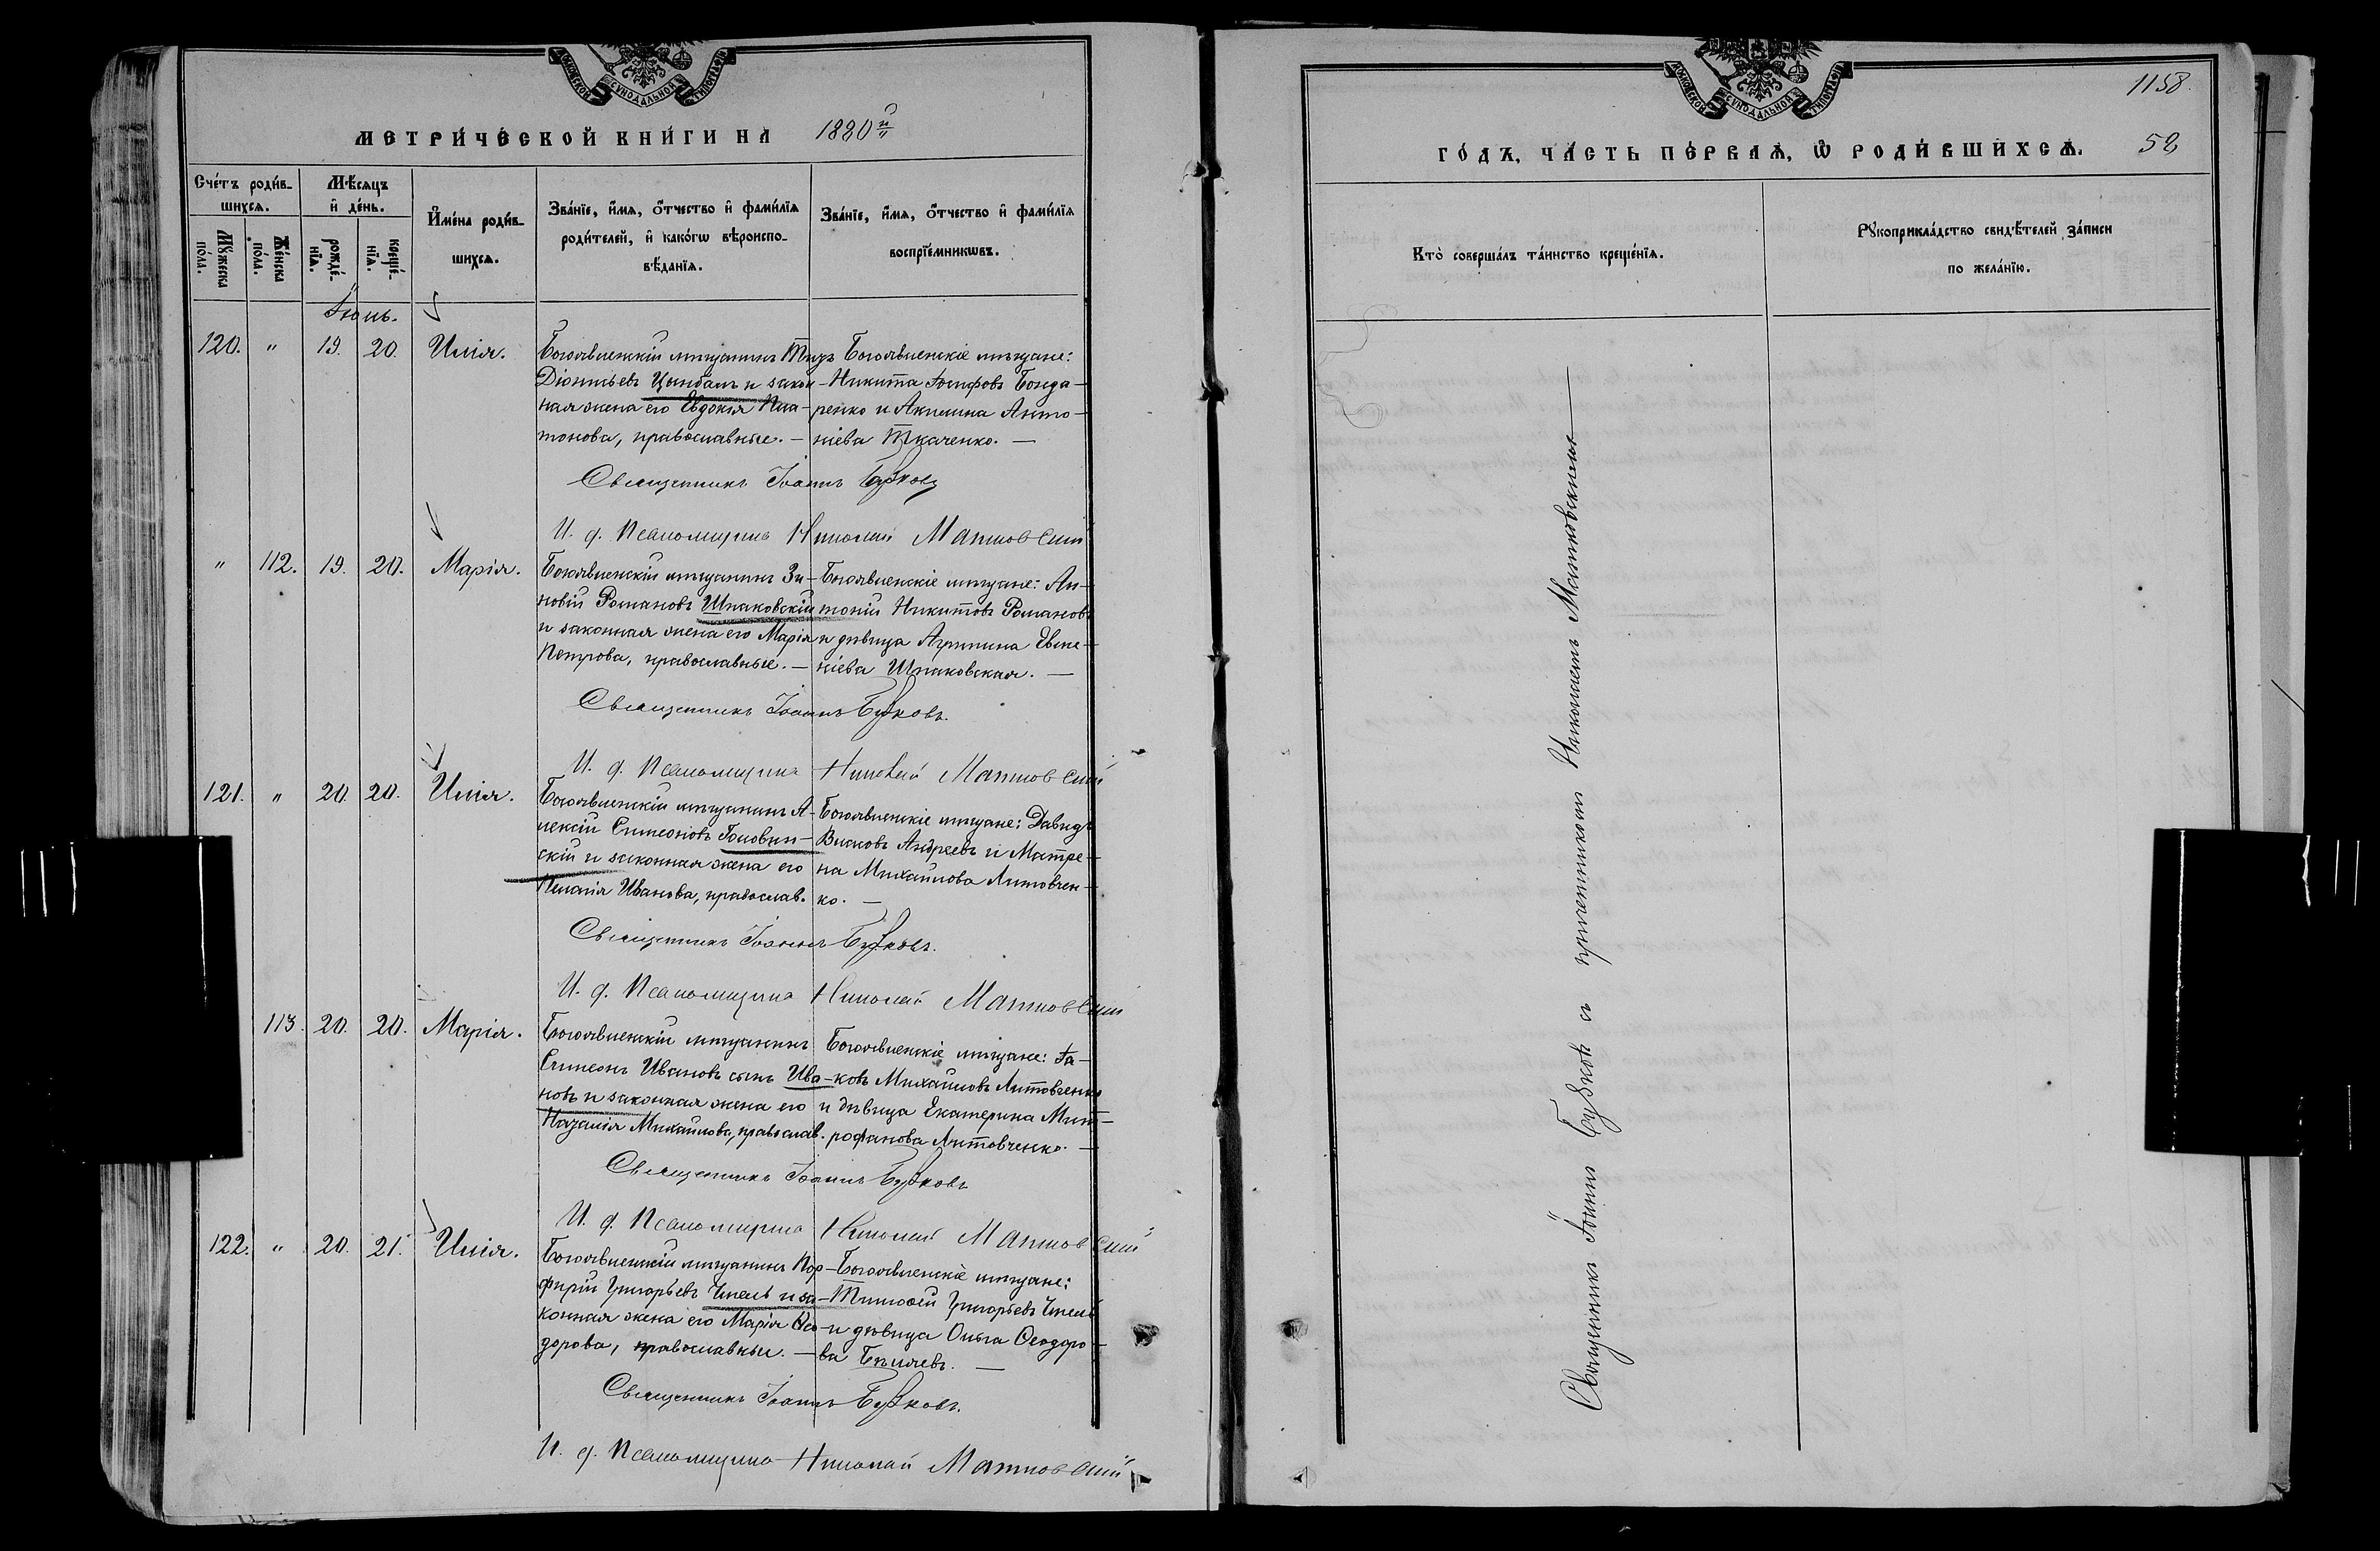 МОСКОВСКОЙ СѴНОДАЛЬНОЙ ТИПОГРАФІИ
МЕТРИ́ЧЕСКОЙ КНИ́ГИ НА 1880й
Сче́тъ роди́в-
шихсѧ.
Мꙋ́жеска
по́ла.
Же́нска
по́ла.
Мѣ́сѧцъ
и҆ де́нь.
рожде́-
нїѧ.
креще́-
нїѧ.
И҆мена̀ роди́в-
шихсѧ.
Зва́нїе, и҆́мѧ, ѻ҆́тчество и҆ фами́лїѧ
роди́телей, и҆ како́гѡ вѣроиспо-
вѣ́данїѧ.
Зва́нїе, и҆́мѧ, ѻ҆́тчество и҆ фами́лїѧ
воспрїе́мникѡвъ.
Іюнь.
120. " 19. 20. Илія.
Богоявленскій мѣщанинъ
Діонисьевъ Цымбалъ и закон-
ная жена его Евдокія Пла-
тонова, православные. —
Богоявленскіе мѣщане:
Никита Іосифовъ Бонда-
ренко и Акилина Анто-
ніева Ткаченко. —
Священникъ Іоаннъ Бужковъ
И. д. Псаломщика Николай Матковскій
" 112. 19. 20. Марія.
Богоявленскій мѣщанинъ Зи-
новій Романовъ Шпаковскій
и законная жена его Марія
Петрова, православные. —
Богоявленскіе мѣщане: Ан-
тоній Никитовъ Романовъ
и дѣвица Агрипина Евме-
ніева Шпаковская. —
Священникъ Іоаннъ Бужковъ.
И. д. Псаломщика Николай Матковскій
121. " 20. 20. Илія.
Богоявленскій мѣщанинъ А-
лексій Симеоновъ Головин-
скій и законная жена его
Пелагія Иванова, православ.
Богоявленскіе мѣщане: Давидъ
Андреевъ и Матре-
на Михайлова Литовчен-
ко. —
Священникъ Іоаннъ Бужковъ.
И. д. Псаломщика Николай Матковскій
113. 20. 20. Марія.
Богоявленскій мѣщанинъ
Симеонъ Ивановъ сынъ Ива-
новъ и законная жена его
Михайлова, православ.
Богоявленскіе мѣщане: Іа-
ковъ Михайловъ Литовченко
и дѣвица Екатерина Мит-
рофанова Литовченко. —
Священникъ Іоаннъ Бужковъ
И. д. Псаломщика Николай Матковскій
122. " 20. 21. Илія.
Богоявленскій мѣщанинъ Пор-
фирій Григорьевъ Чмель и за-
конная жена его Марія Ѳео-
дорова, православные. —
Богоявленскіе мѣщане:
Тимоѳей Григорьевъ Чмель
и дѣвица Ольга Ѳеодоро-
ва —
Священникъ Іоаннъ Бужковъ.
И. д. Псаломщика Николай Матковскій
МОСКОВСКОЙ СѴНОДАЛЬНОЙ ТИПОГРАФІИ
1158.
ГО́ДЪ, ЧА́СТЬ ПЕ́РВАѦ, Ѽ РОДИ́ВШИХСѦ. 58
Кто̀ соверша́лъ та́инство креще́нїѧ.
Рꙋкоприкла́дство свидѣ́телей за́писи
по жела́нїю.
Священникъ Іоаннъ Бужковъ съ причетникомъ Николаемъ Матковскимъ